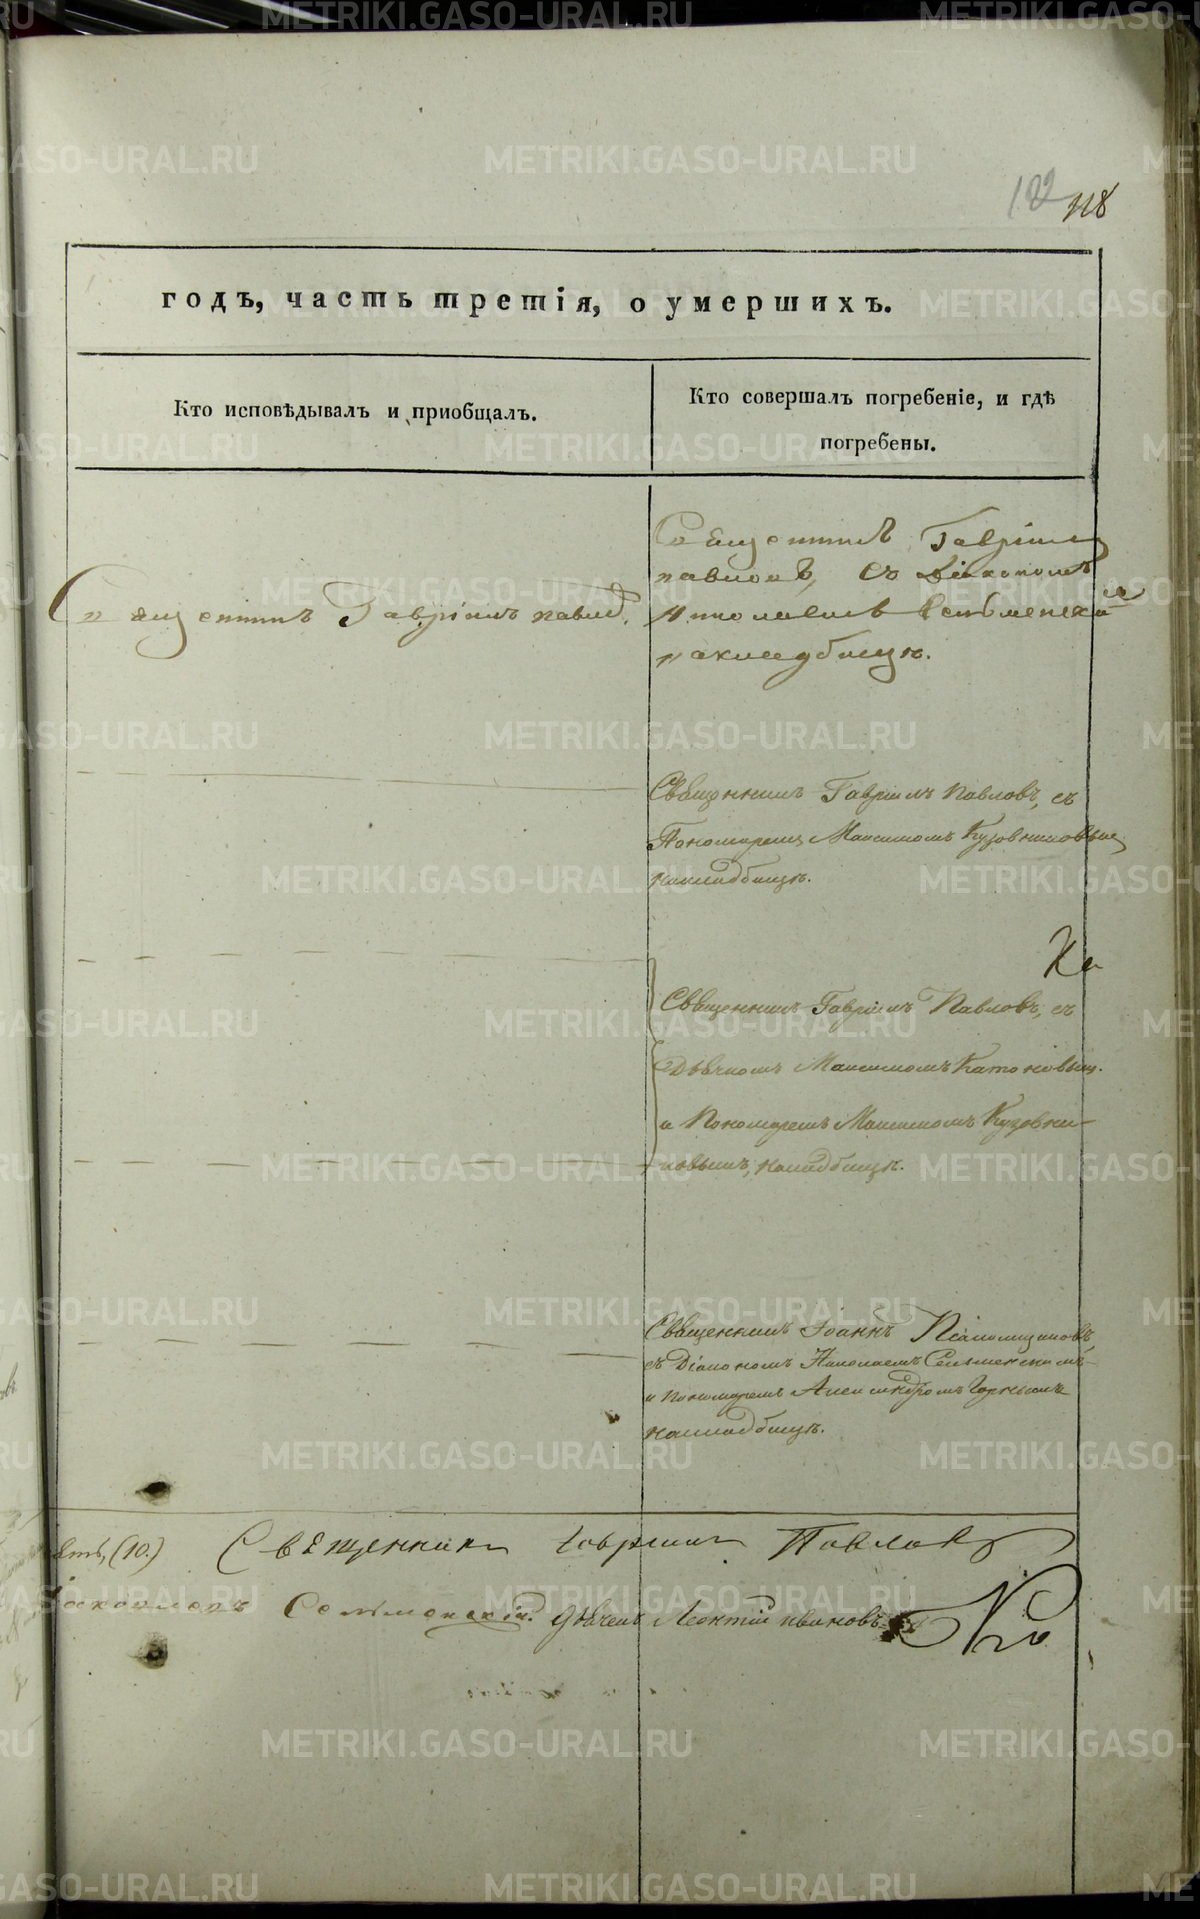 METRIKI.GASO-URAL.RU
122 118
годъ, часть третія, о умершихъ.
Кто исповѣдывалъ и приобщалъ.
Кто совершалъ погребеніе, и гдѣ
погребены.
Священникъ Гавріилъ
Павловъ, съ Діакономъ
Священникъ Гавріилъ Павлов.
Николаемъ Сельменскимъ
на кладбищѣ.
Священникъ Гавріилъ Павловъ, съ
Пономаремъ Максимомъ Кузовниковымъ
на кладбищѣ.
Ка
Священникъ Гавріилъ Павловъ, съ
Дьячкомъ Максимомъ Катоновымъ.
и Пономаремъ Максимомъ Кузовни-
ковымъ, на кладбищѣ.
Священникъ Іоаннъ
съ Діакономъ Николаемъ Сельменскимъ
и Пономаремъ Александромъ Горнымъ
на кладбищѣ.
(10.) Священникъ Гавріилъ Павловъ
Діаконъ Сельменскій. Дьячекъ Леонтій Ивановъ